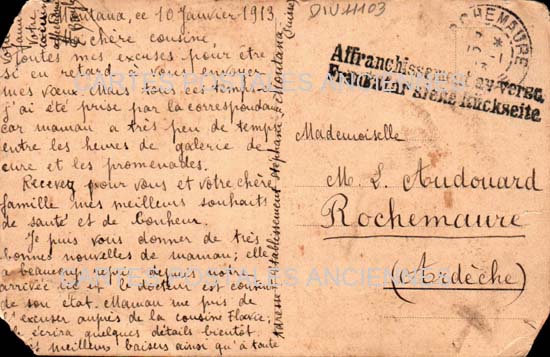 Montana, ce 10 Janvier 1913
chère cousine,
Toutes mes excuses pour être
si en retard à vous envoyer
mes vœux. Mais tous ces temps
j'ai été prise par la correspondance
car maman a très peu de temps
entre les heures de galerie de
cure et les promenades.
Recevez pour vous et votre chère
famille mes meilleurs souhaits
de santé et de bonheur.
Je puis vous donner de très
bonnes nouvelles de maman; elle
a beaucoup depuis notre
arrivée et le docteur est content
de son état. Maman me prie de
l'excuser auprès de la cousine Flavie;
écrira quelques détails bientôt.
meilleurs baisers ainsi qu'à toute
Votre
Adresse: Etablissement Stephani Montana (Suisse)
DIV.11103
ROCHEMAURE
Affranchissement au verso.
Frankatur siehe Rückseite
Mademoiselle
M. L. Audouard
Rochemaure
(Ardèche)
CARTES POSTALES ANCIENNES
CARTES POSTALES ANCIENNES